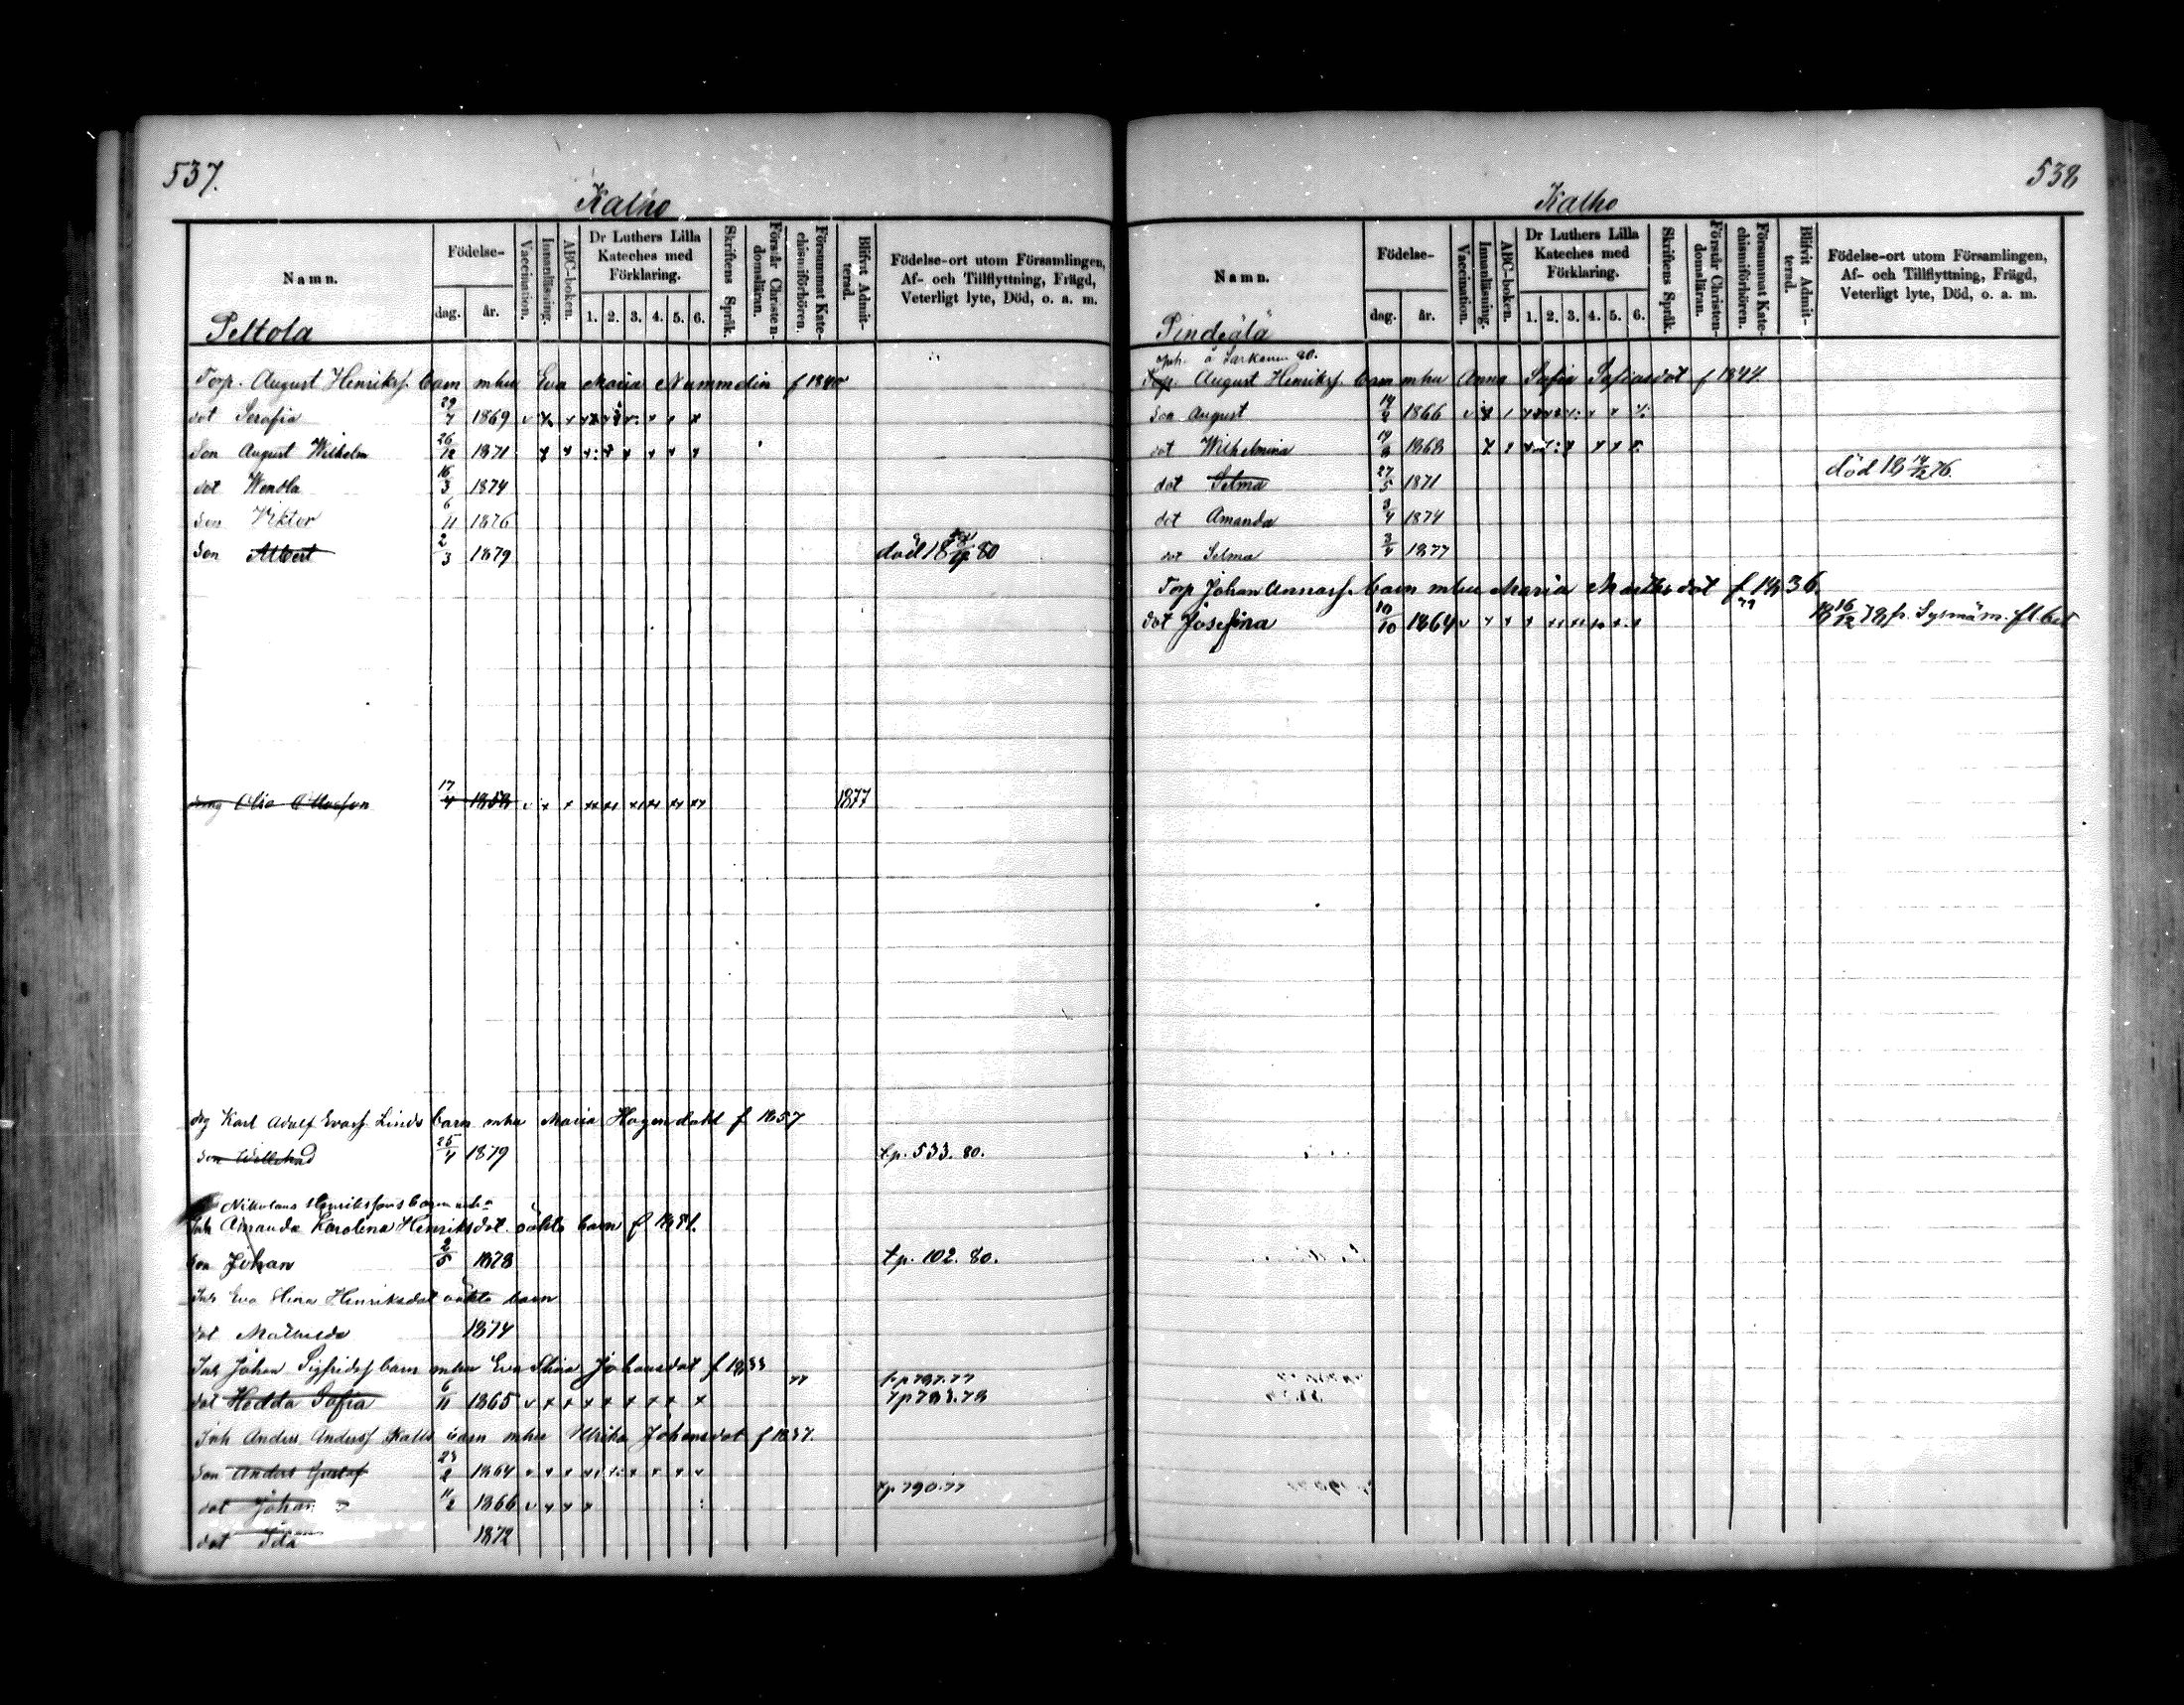 537.
Kalho
Namn.
Födelse-
dag.
år.
Vaccination.
Innanläsning.
ABC-boken.
Dr Luthers Lilla Kateches med Förklaring.
1. 2. 3. 4. 5. 6.
Skriftens Språk.
Förstår Christendomsläran.
Försummat Katechismiförhören.
Blifvit Admitterad.
Födelse-ort utom Församlingen, Af- och Tillflyttning, Frägd, Veterligt lyte, Död, o. a. m.
Peltola
Torp. August Henrikss. barn mhu Eva Maria Nummelin f 1840
dot Serafia 29/7 1869
Son August Wilhelm 26/12 1871
dot Wendla 16/3 1874
Son Viktor 6/11 1876
Son Albert 2/3 1879 död 18 80
17/4 1858 1877
drg Karl Adolf Evass Linds barn mhu Maria Hagendahl f 1857
Son 25/4 1879 tp. 533. 80.
Nikolaus Henrikssons barn mhu
Inh Amanda Karolina Henriksdot oäkta barn f 1851.
Son Johan 2/5 1878 tp. 102. 80.
Inh Eva Stina Henriksdot oäkta barn
dot Mathilda 1874
Inh Johan Sigfridss barn mhu Eva Stina Johansdot f 1833
77 tp 797.77
dot Hedda Sofia 6/11 1865 tp 793.78
Inh Anders Anderss Kalls barn mhu Ulrika Johansdot f 1837.
Son Anders Gustaf 23/2 1864
tp. 790.77
dot Johan 11/2 1866
dot Ida 1872
538
Kalho
Namn.
Födelse-
dag.
år.
Vaccination.
Innanläsning.
ABC-boken.
Dr Luthers Lilla Kateches med Förklaring.
1. 2. 3. 4. 5. 6.
Skriftens Språk.
Förstår Christendomsläran.
Försummat Katechismiförhören.
Blifvit Admitterad.
Födelse-ort utom Församlingen, Af- och Tillflyttning, Frägd, Veterligt lyte, Död, o. a. m.
Pindiälä
Inh. å 80.
Torp. August Henrikss. barn mhu Anna Sofia Sofiasdot f 1844
Son August 1866
dot Wilhelmina 1868
dot Selma 27/5 1871 död 18 76
dot Amanda 3/4 1874
dot Selma 3/4 1877
Torp Johan Annass. barn mhu Maria Mattsdot f 1836.
79
dot Josefina 19/10 1864 18 16/12 78 fr. Sysmä m. fl. bet